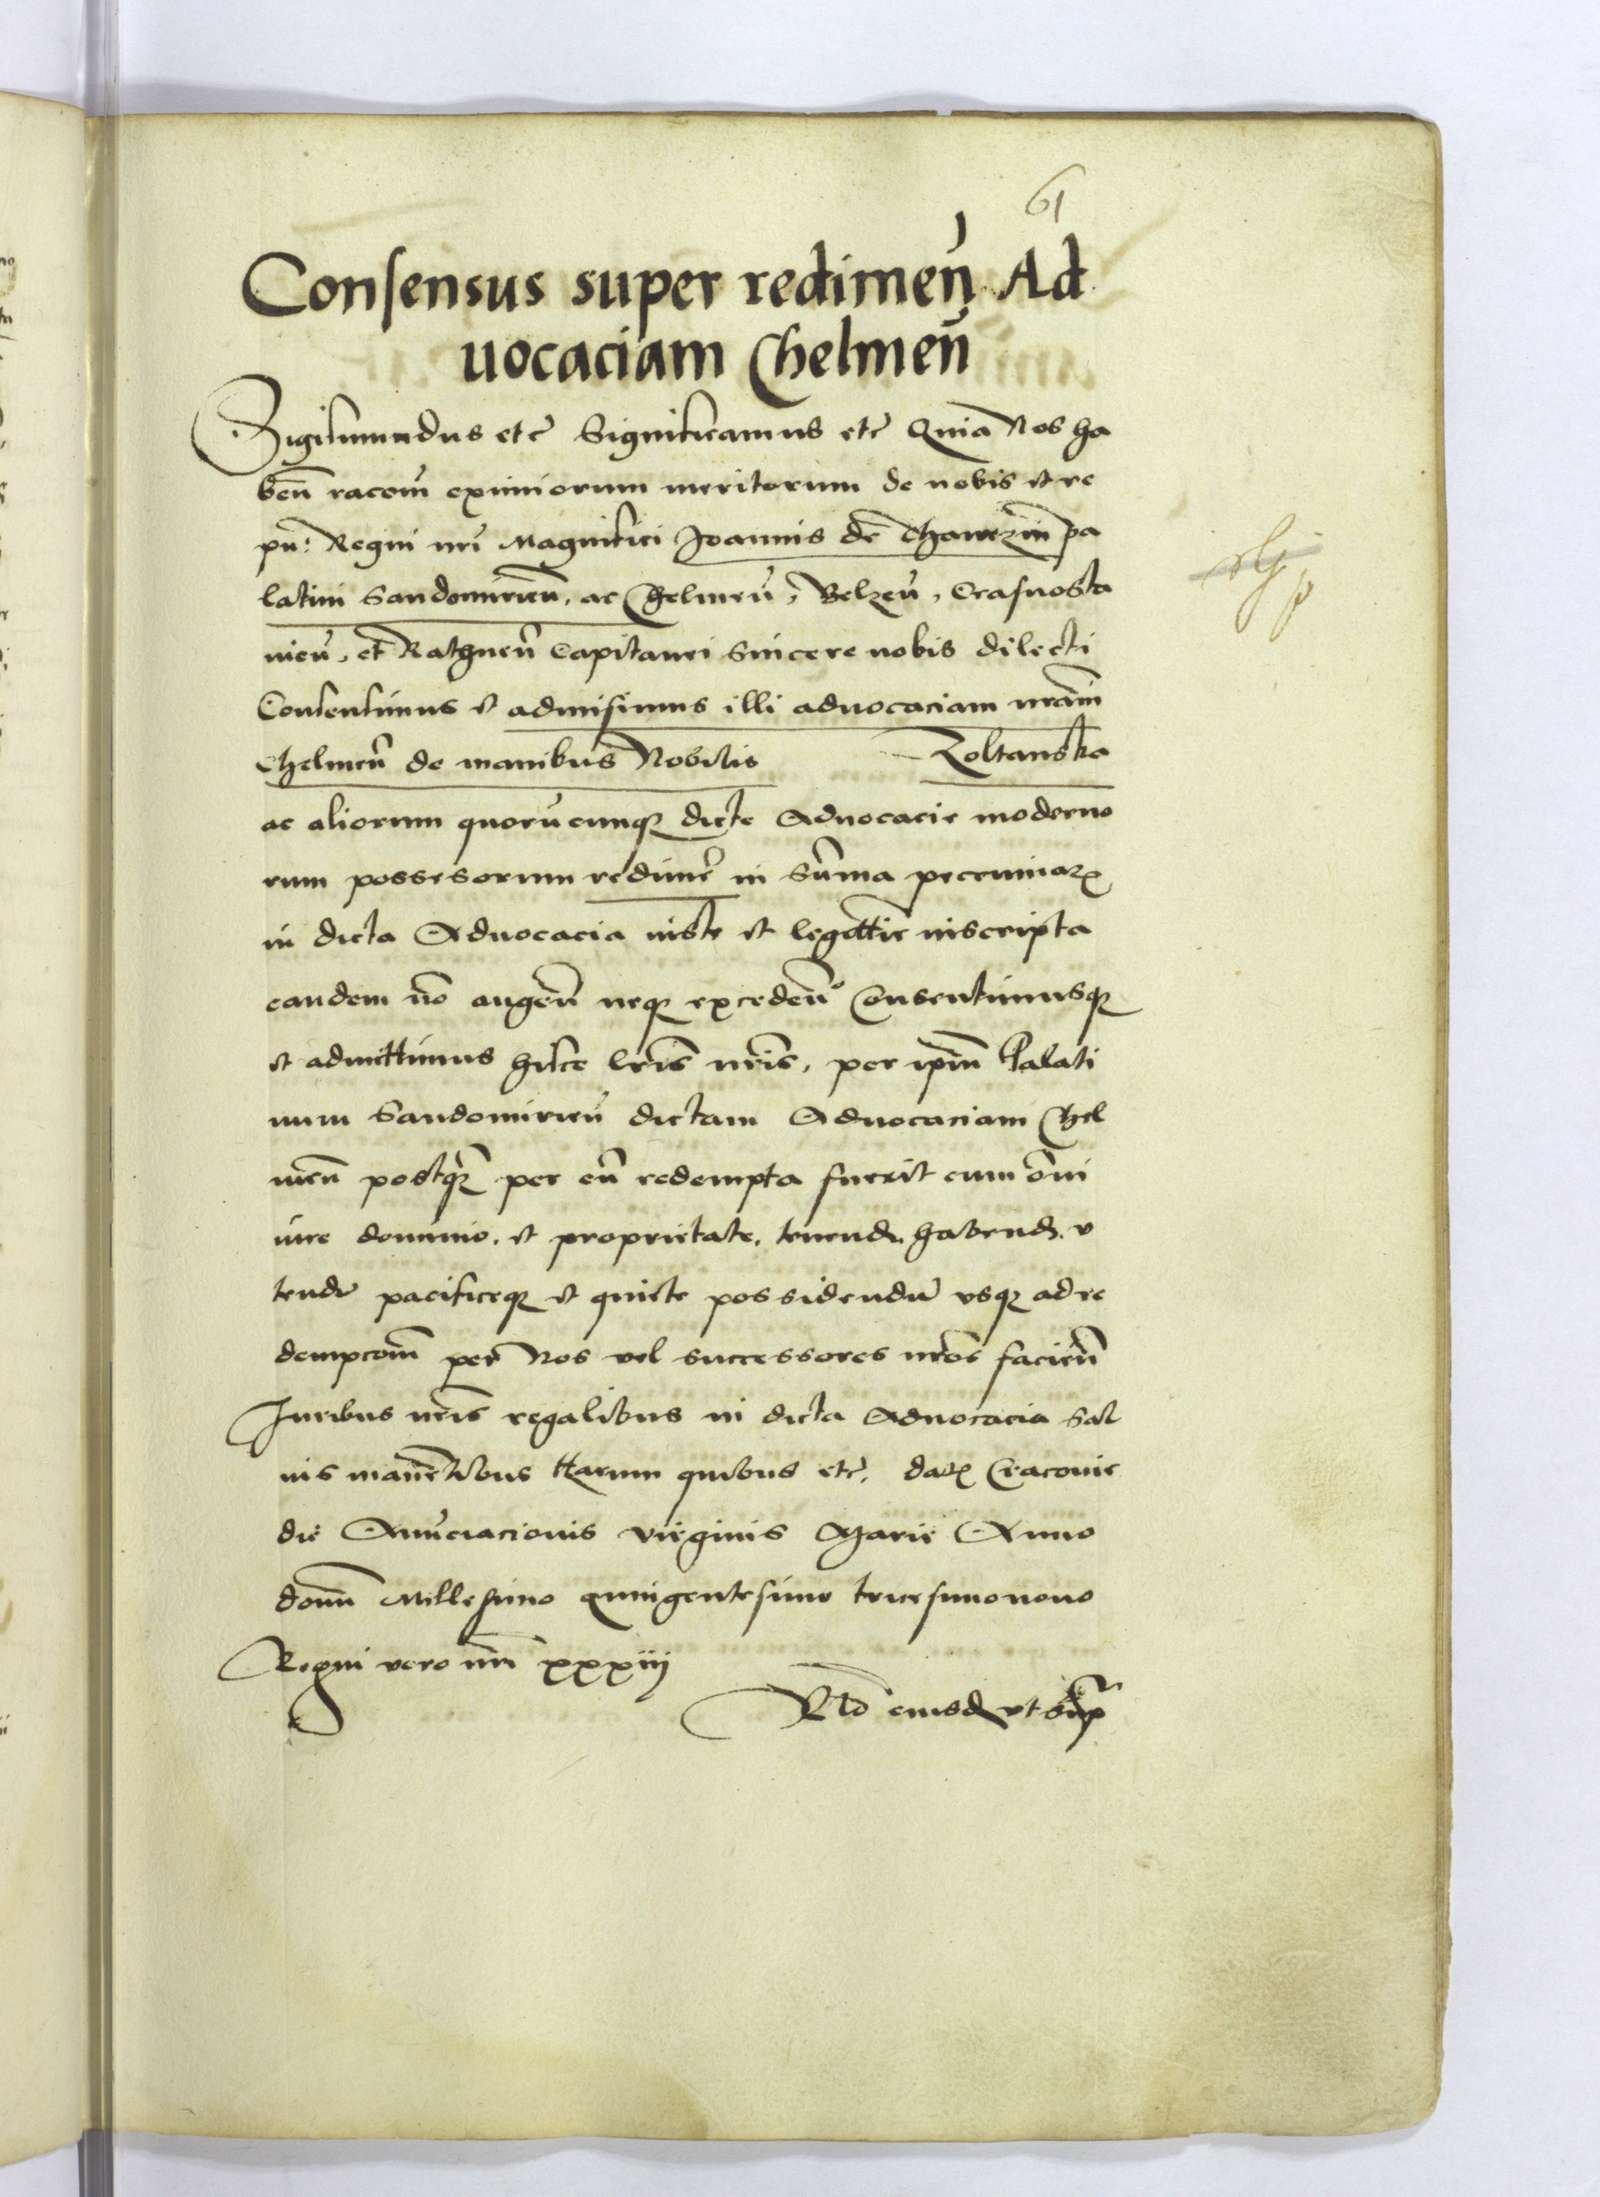 61
Consensus super redimen̄ Ad
uocaciam Chelmen̄
Sigismundus etc̄ Significamus etc̄ Quia Nos ha
ben̄ racom̄ eximiorum meritorum de nobis et re
pu: Regni nr̄i Magnifici Joannis de Thanczin pa
latini Sandomirien̄, ac Chelmen̄, Belzen̄, Crasnosta
uien̄, et Rathnen̄ Capitanei Sincere nobis dilecti
Consensimus et admisimus illi aduocaciam nr̄am
Chelmen̄ de manibus Nobilis Zoltanska
ac aliorum quorūcunq dicte Aduocacie moderno
rum possessorum redimer̄ in Sūma pecuniarꝫ
in dicta Aduocacia iuste et legittie inscripta
eandem nō augen̄ neqꝫ exceden̄ Consentimusqꝫ
et admittimus hisce lr̄is nr̄is, per ip̄m Palati
num Sandomirien̄ dictam Aduocaciam Chel
men̄ postq̄ per eū redempta fuerit cum om̄i
iure dominio, et proprietate, tenend, habend, v
tend pacificeqꝫ et quiete possidendū vsqꝫ ad re
dempcom̄ per Nos vel successores nr̄os facien̄
Juribus nr̄is regalibus in dicta Aduocacia Sal
uis manētibus Harum quibus etc̄, datꝫ Cracouie
die Anūciacionis Virginis Marie Anno
domī Millesimo quingentesimo tricesimonono
Regni vero nr̄i xxxiij
Rlō eiusd vt sup̄